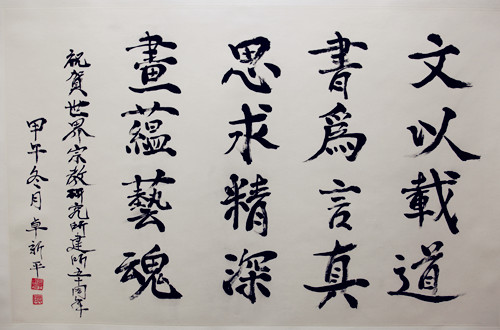 文以載道
書為言真
思求精深
畫蘊藝魂
祝賀世界宗教研究所建所五十周年
甲午冬月卓新平